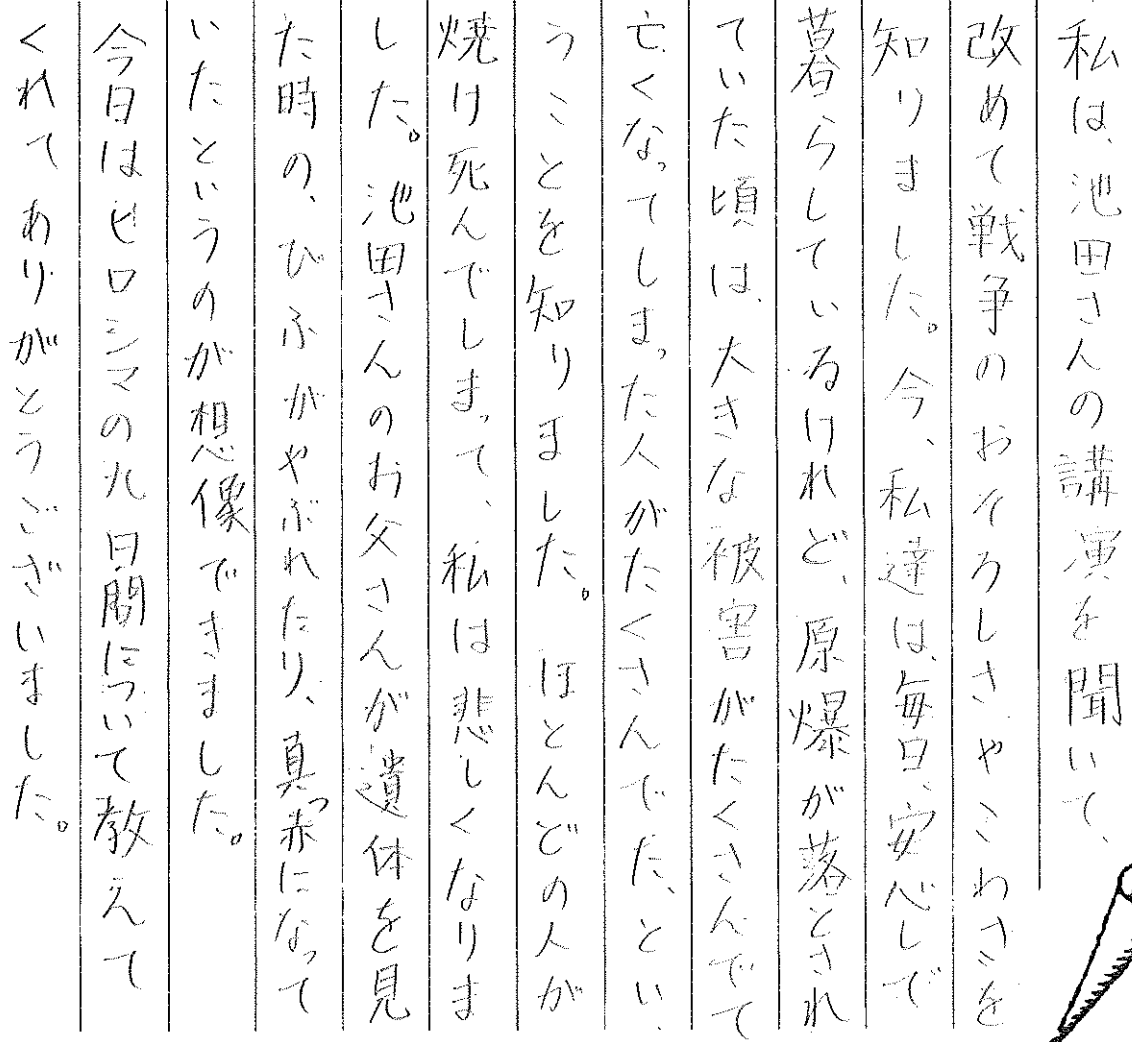 私は、池田さんの講演を聞いて、
改めて戦争のおそろしさ、やこわさを
知りました。今、私達は、毎日、安心しで
暮らしているけれど、原爆が落とされ
ていた頃は、大きな被害がたくさんでて
亡くなってしまった人がたくさんでた、とい、
うことを知りました。ほとんどの人が
焼け死んでしまって、私は悲しくなりま
した。池田さんのお父さんが遺体を見
た時の、ひふがやぶれたり、真っ赤になって
いたというのが想像できました。
今日はヒロシマの九日間について教えて
くれてありがとうございました。